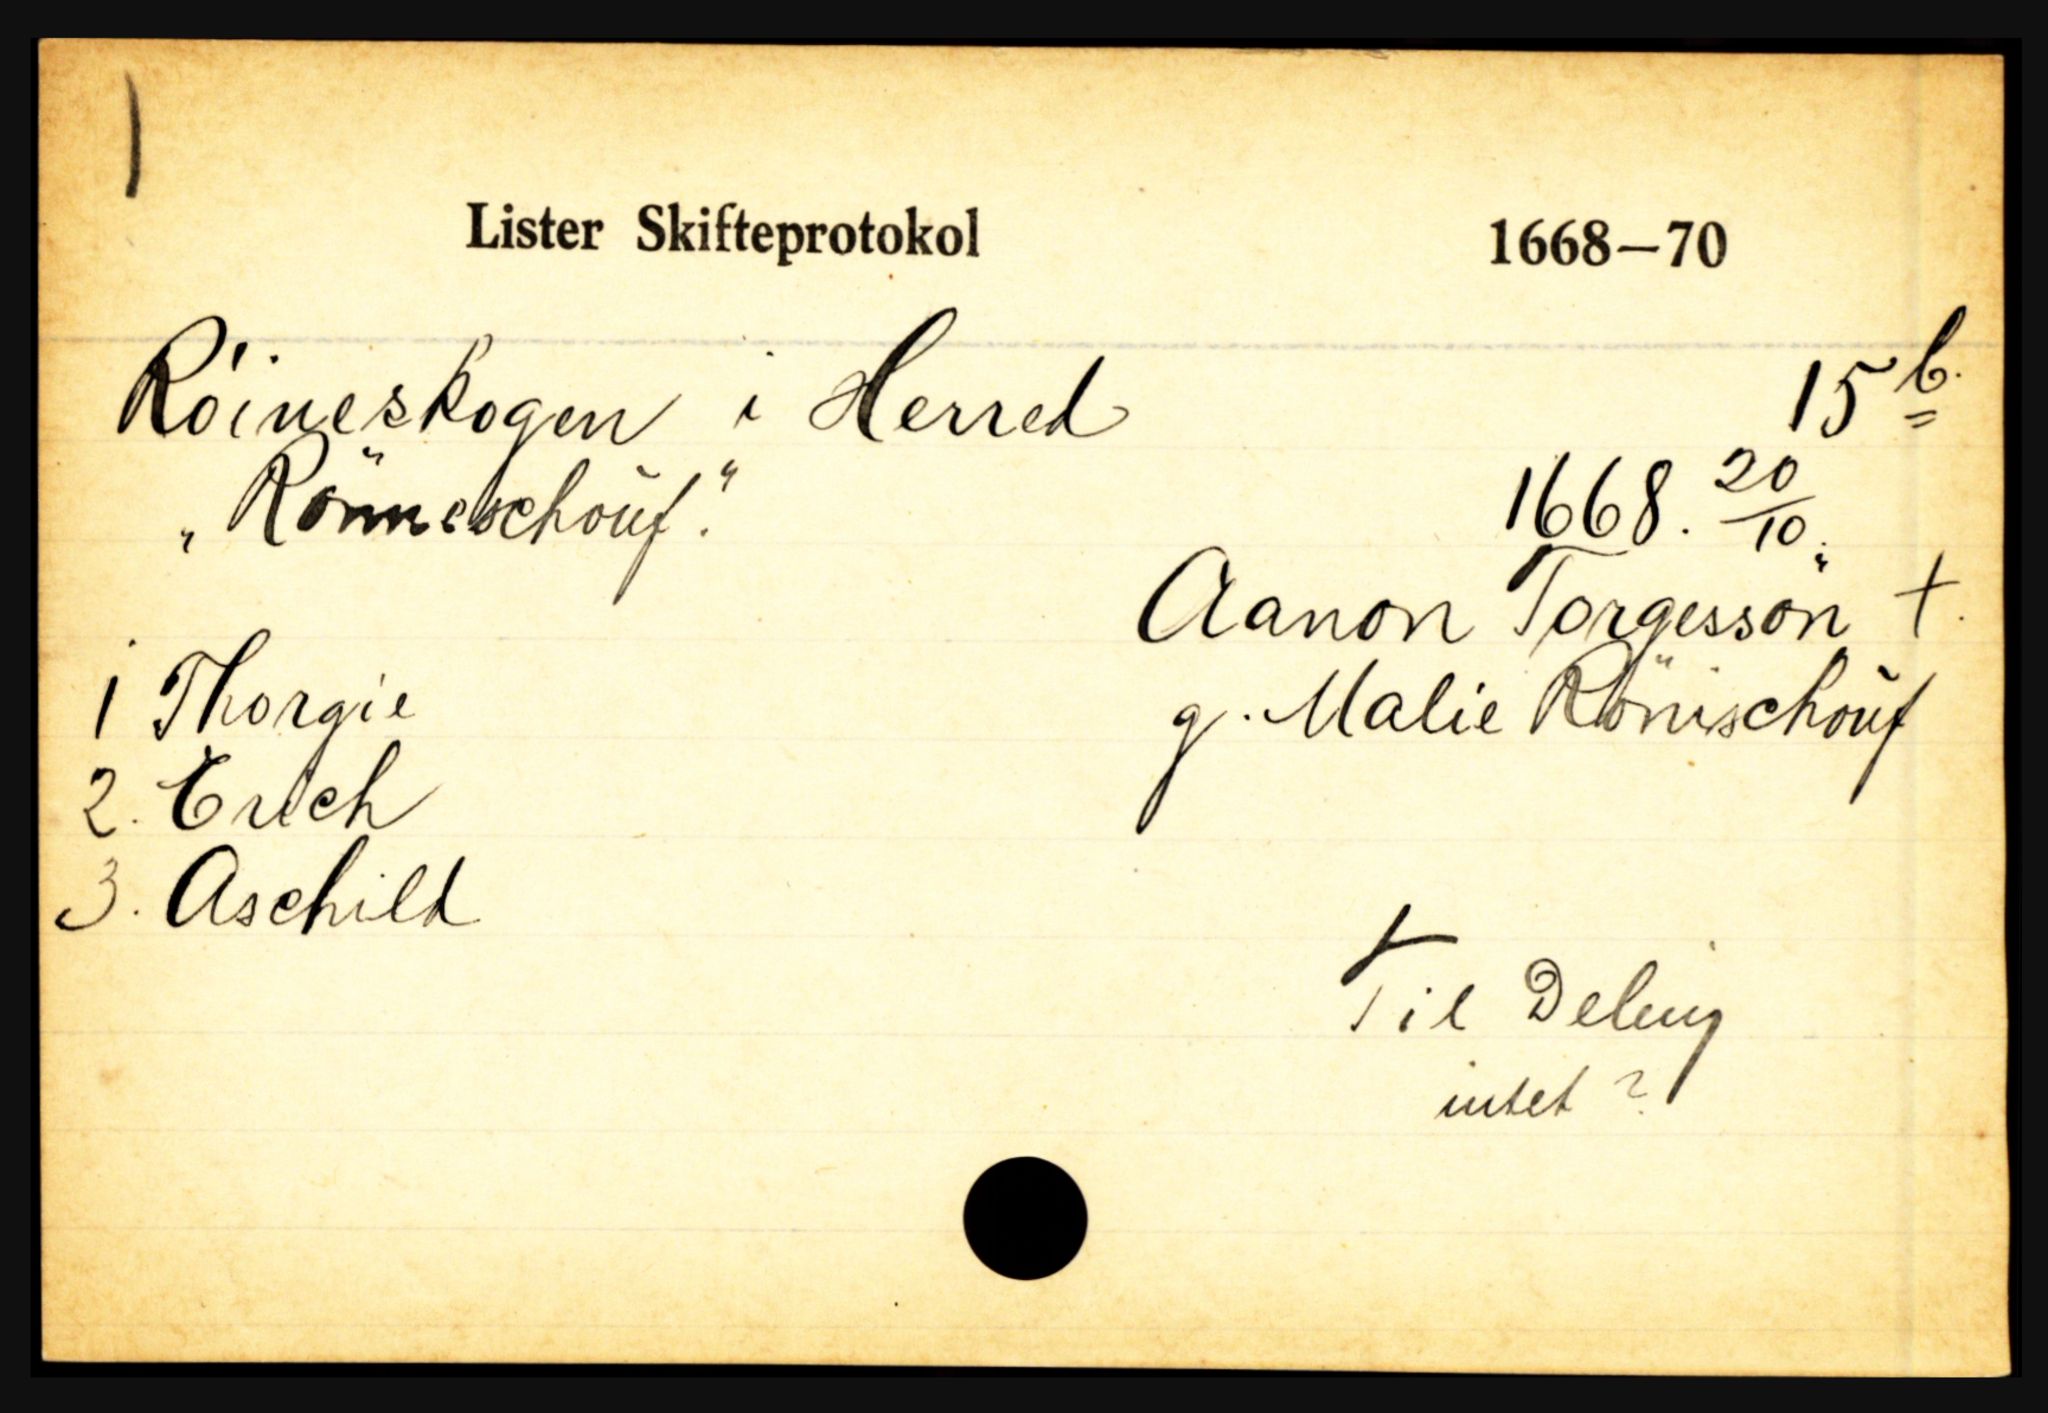 Lister Skifteprotokol 1668—70
Röineskogen i Herred 15 b.
„Rönneschoŭf."
1668. 20/10.
Aanon Torgessön †.
g. Malie Rönischoŭf
1 Thorgie
2. Erich
3. Aschild
Til Deling
intet ?